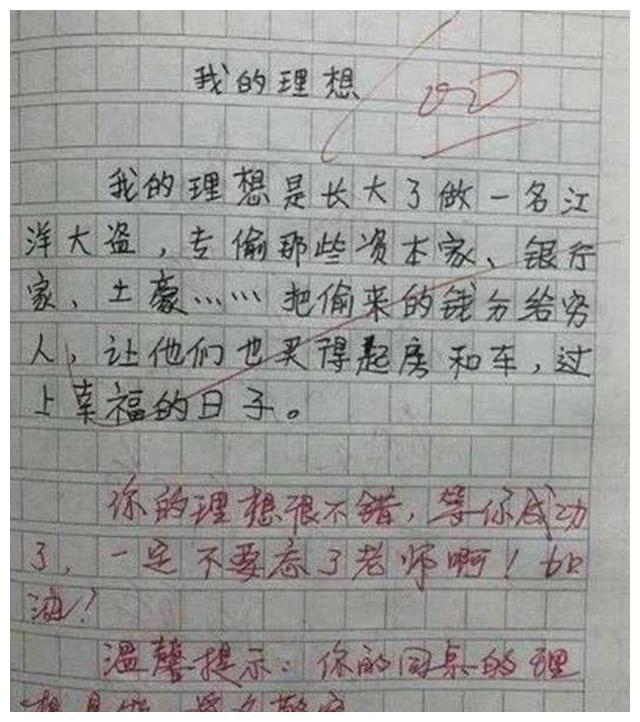 我的理想
我的理想是长大了做一名江
洋大盗，专偷那些资本家、银行
家、土豪……把偷来的钱分给穷
人，让他们也买得起房和车，过
上幸福的日子。
你的理想很不错，等你成功
了，一定不要忘了老师啊！加
油！
温馨提示：你的同桌的理
想是